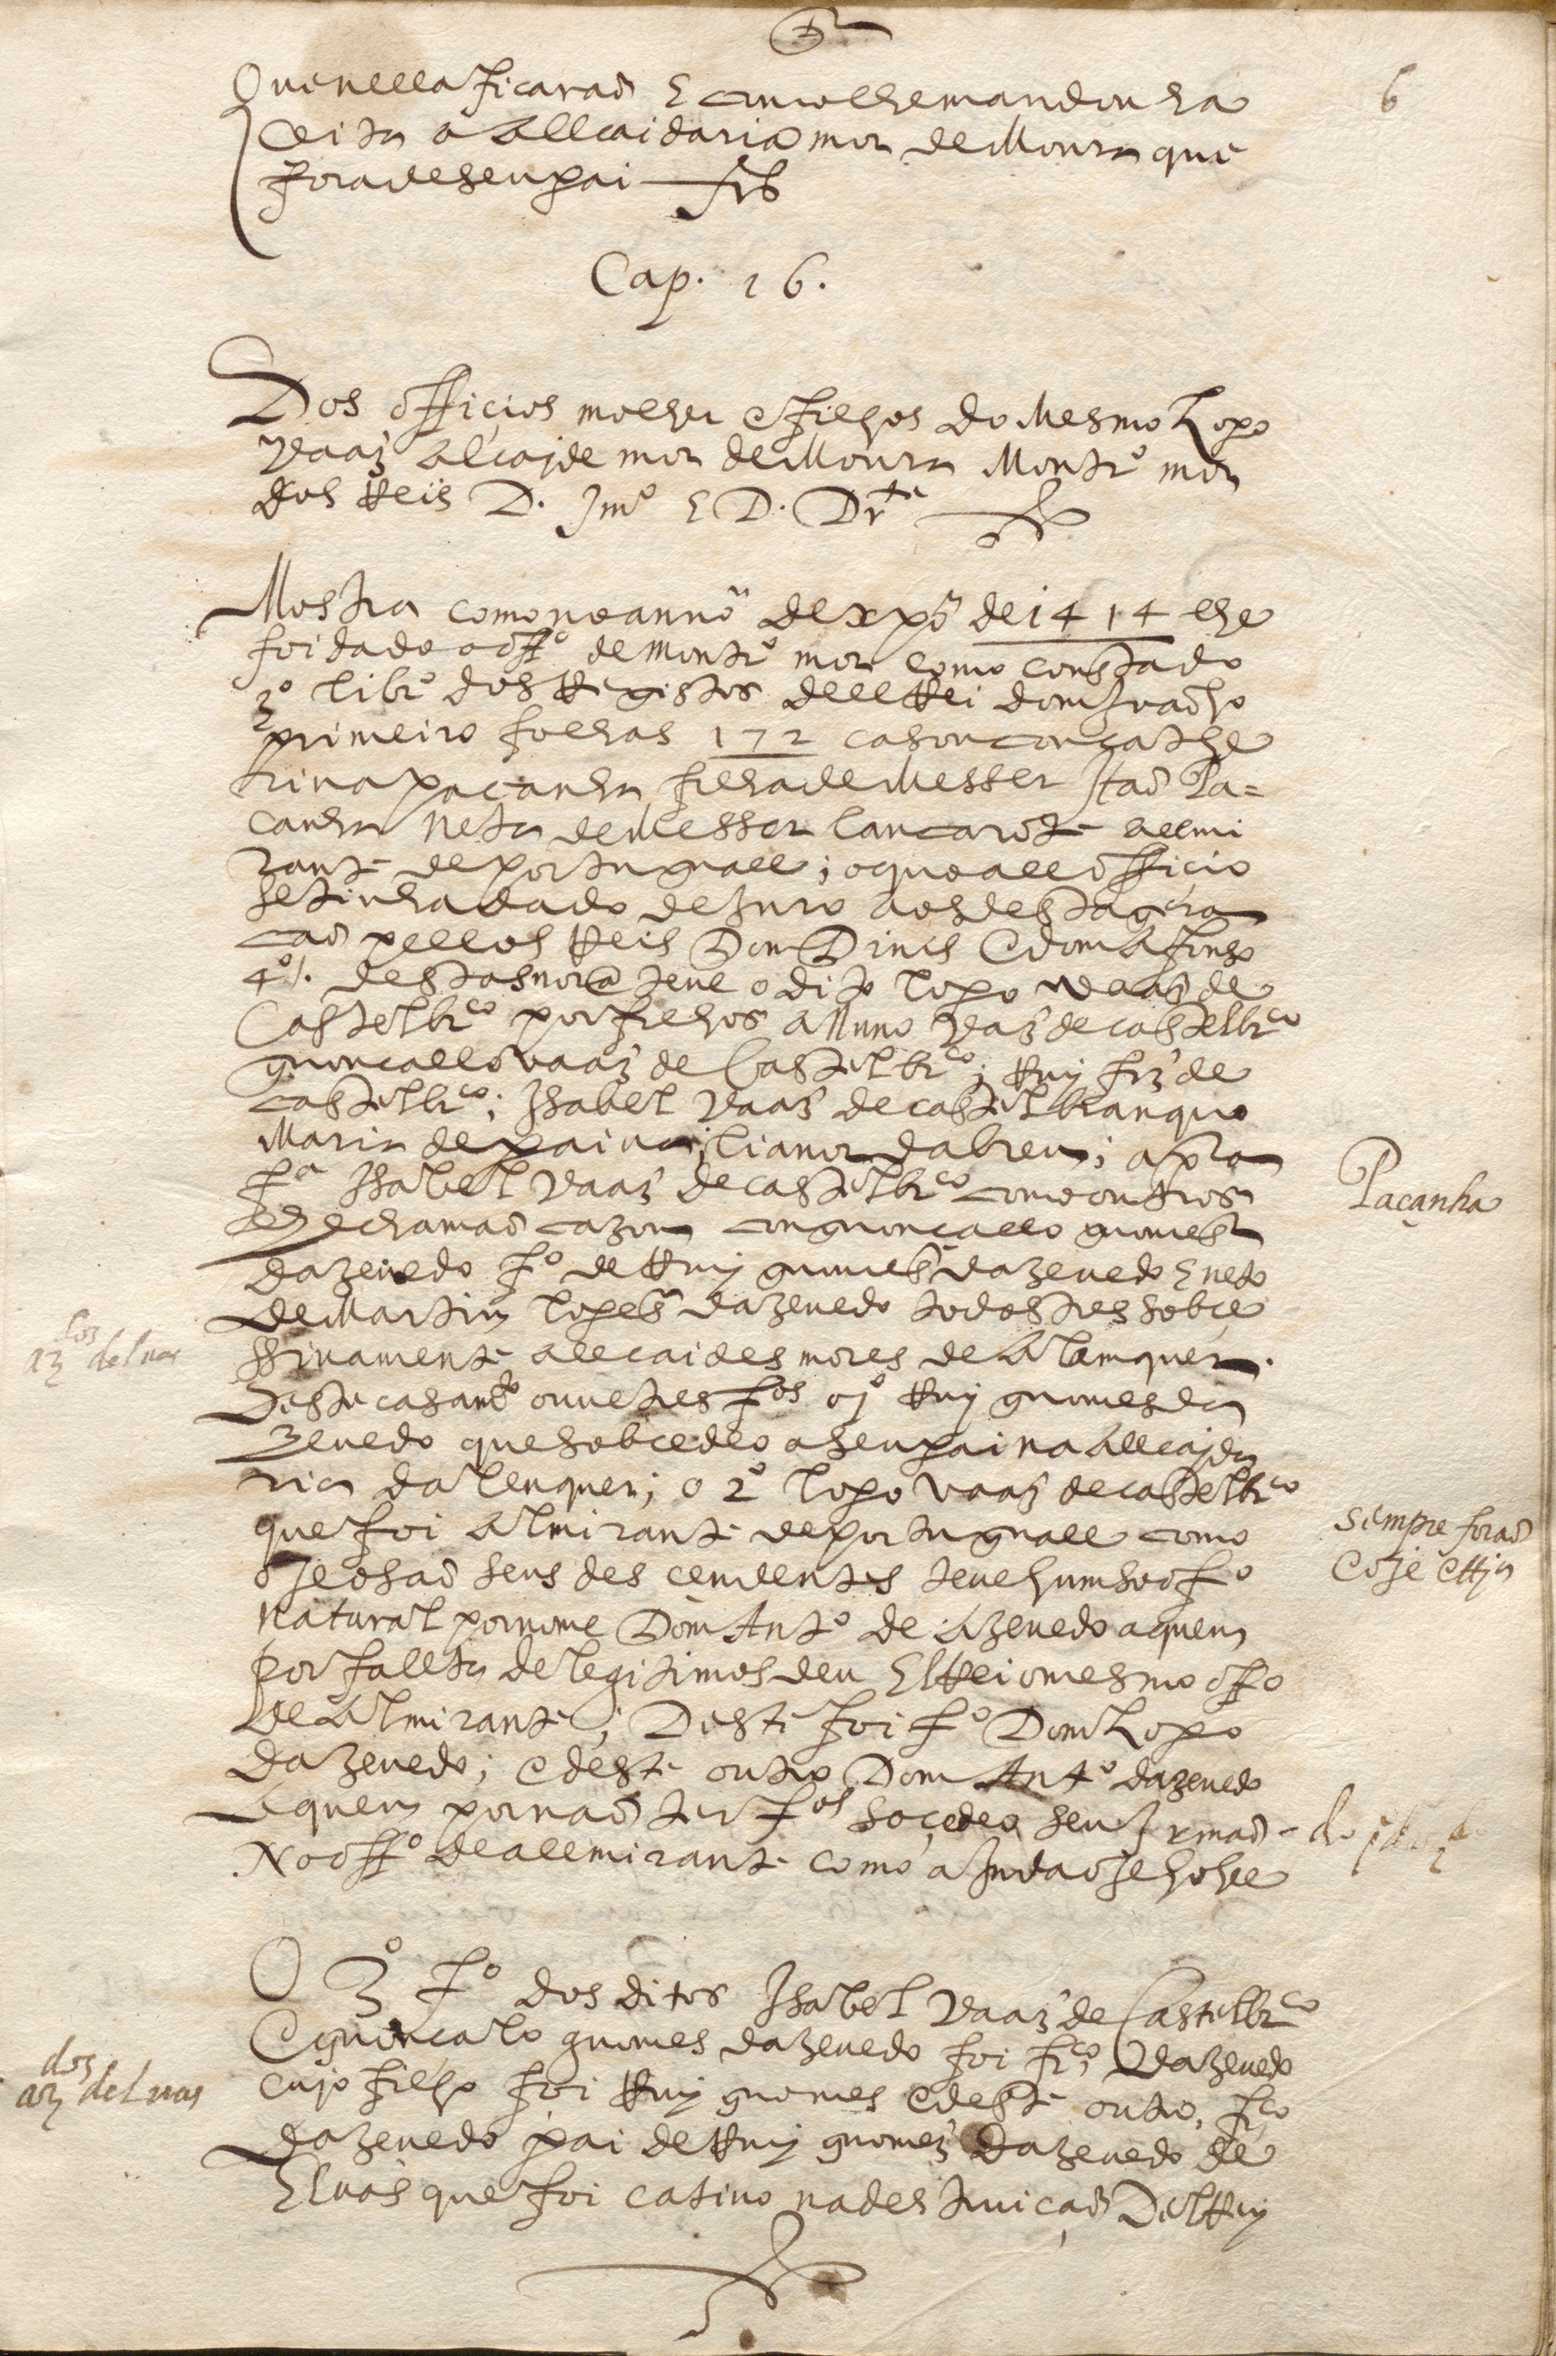 6
Que nella ficaraõ E como lhe mandou ha
ceita a Allcaidaria mor de Moura que
fora de seu pai
Cap. 16.
Dos officios molher e filhos do Mesmo Lopo
Vaaz Alcajde mor de Moura Montrº mor
dos Reis D. Jmº E D. Drte
Mostra como no annõ de xpõ de 1414 lhe
foi dado o offº de montrº mor como consta do
3º librº dos Registos dell Rei dom Juaõ ho
primeiro folhas 172 casou com Cathe
rina paçanha filha de Messer Itaõ Pa=
canha neta de Messer Lancarote allmi
rante de portuguall; o quoall officio
se tinha dado de Juro aos desta gera
caõ pellos Reis Dom Dinis e dom Afonso
4º/. desta snorã teue o dito Lopo Vaaz de
Castelbrco por filhos a Nuno Vaaz de castelbrco
guoncallo vaaz de Castelbrco; Ruy frz de
castelbrco; Isabel Vaaz de castelbranquo
Maria de paiva; lianor dabreu; a pra
fª Isabel Vaaz de castelbrco como outros
lhe chamaõ cazou com guoncallo guomes
dazeuedo fº de Ruy guomes dazeuedo E neto
de Martim Lopes dazeuedo todos tres sobce
ssivamente allcaides mores de Alamquer.
Deste casamto ouue tres fos o jº Ruy guomes da
zeuedo que sobcedeo a seu pai na Allcajda
ria dalenquer; o 2º Lopo vaaz de castelbrco
que foi Almirante de portuguall como
oje o saõ seus descendentes teue hum soo fº
natural por nome Dom Antº de Azeuedo a quem
por fallta de legitimos deu El Rei o mesmo offº
de Almirante; Deste foi fº Dom Lopo
dazeuedo; e deste outro Dom Antº dazeuedo
a quem por naõ ter fos soçedeo seu Irmaõ
No offº de allmirante como ainda oje ho he
O 3º fº dos ditos Isabel Vaaz de Castelbrco
E guoncalo guomes dazeuedo foi frco dazeuedo
cujo filho foi Ruy guomes e deste outro frco
dazeuedo pai de Ruy guomez dazeuedo de
Eluas que foi catiuo na destruiçaõ Del Rey
Paçanha
dos
az deluas
sempre foraõ
dos
az deLuas